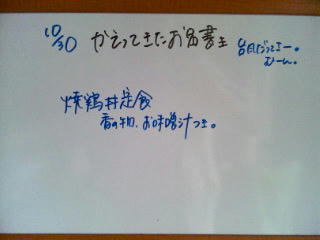 10/30 かえってきたお品書き
台風だってさー。
むーん。
焼鶏丼定食
香の物、お味噌汁つき。